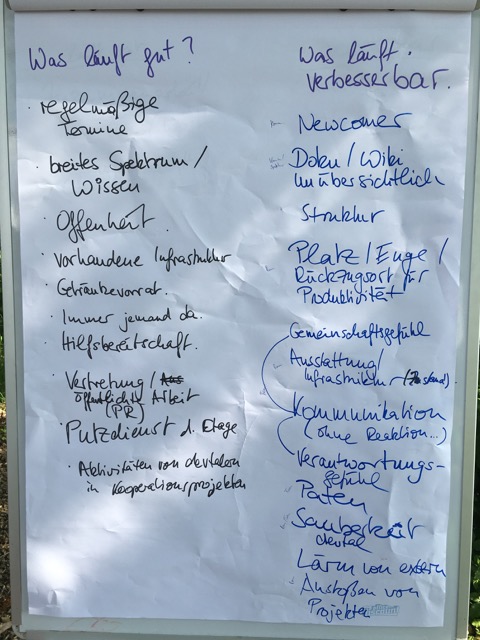 Was läuft gut?
· regelmäßige
Termine
· breites Spektrum /
Wissen
· Offenheit.
· Vorhandene Infrastruktur
· Getränkevorrat.
· Immer jemand da.
· Hilfsbereitschaft.
· Vertretung /
öffentliche Arbeit
(PR)
· Putzdienst d. Etage
· Aktivitäten von devtalern
in Kooperationsprojekten
Was läuft
verbesserbar.
Newcomer
Doku / Wiki
unübersichtlich
Struktur
Platz / Enge /
Rückzugsort für
Produktivität
Gemeinschaftsgefühl
Ausstattung /
Infrastruktur (Zustand)
Kommunikation
(ohne Reaktion...)
Verantwortungs-
gefühl
Paten
Sauberkeit
devtal
Lärm von extern
Anstoßen von
Projekten